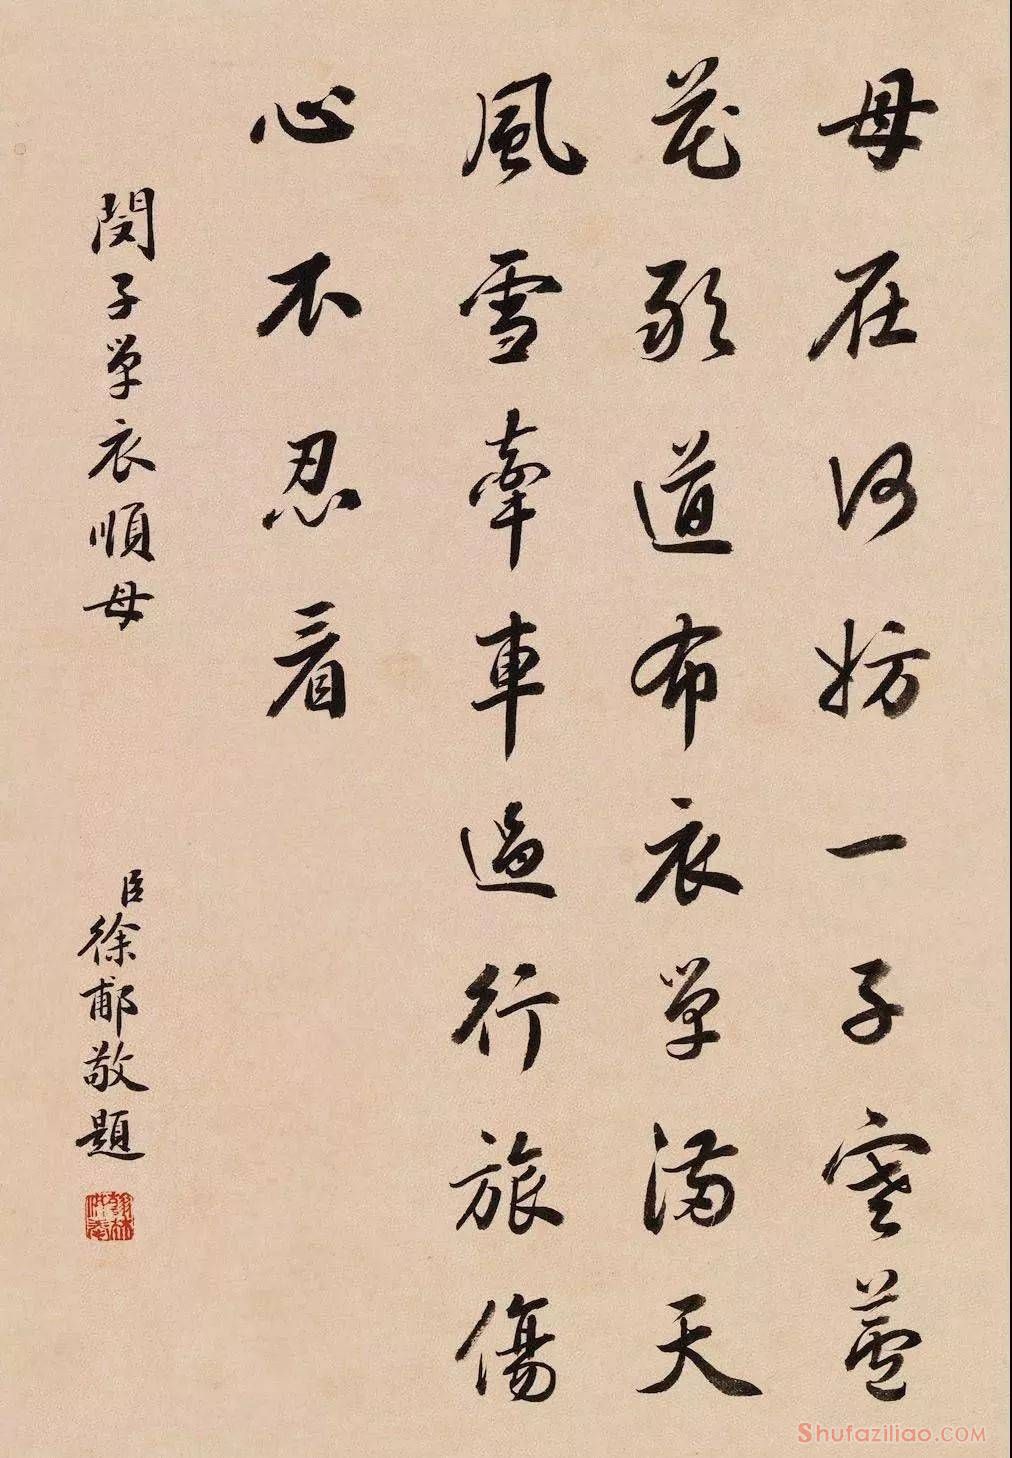 母在何妨一子寒蘆
花敢道布衣單滿天
風雪牽車過行旅傷
心不忍看
閔子單衣順母
臣徐郙敬題
翰林供奉
Shufaziliao.COM